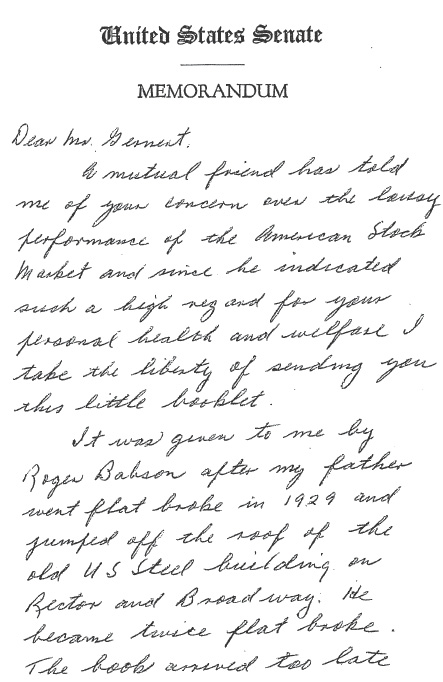 United States Senate
MEMORANDUM
Dear Mr. Gernert.
A mutual friend has told
me of your concern over the lousy
performance of the American Stock
Market and since he indicated
such a high regard for your
personal health and welfare I
take the liberty of sending you
this little booklet.
It was given to me by
Roger Babson after my father
went flat broke in 1929 and
jumped off the roof of the
old US Steel building on
Rector and Broadway. He
became twice flat broke.
The book arrived too late